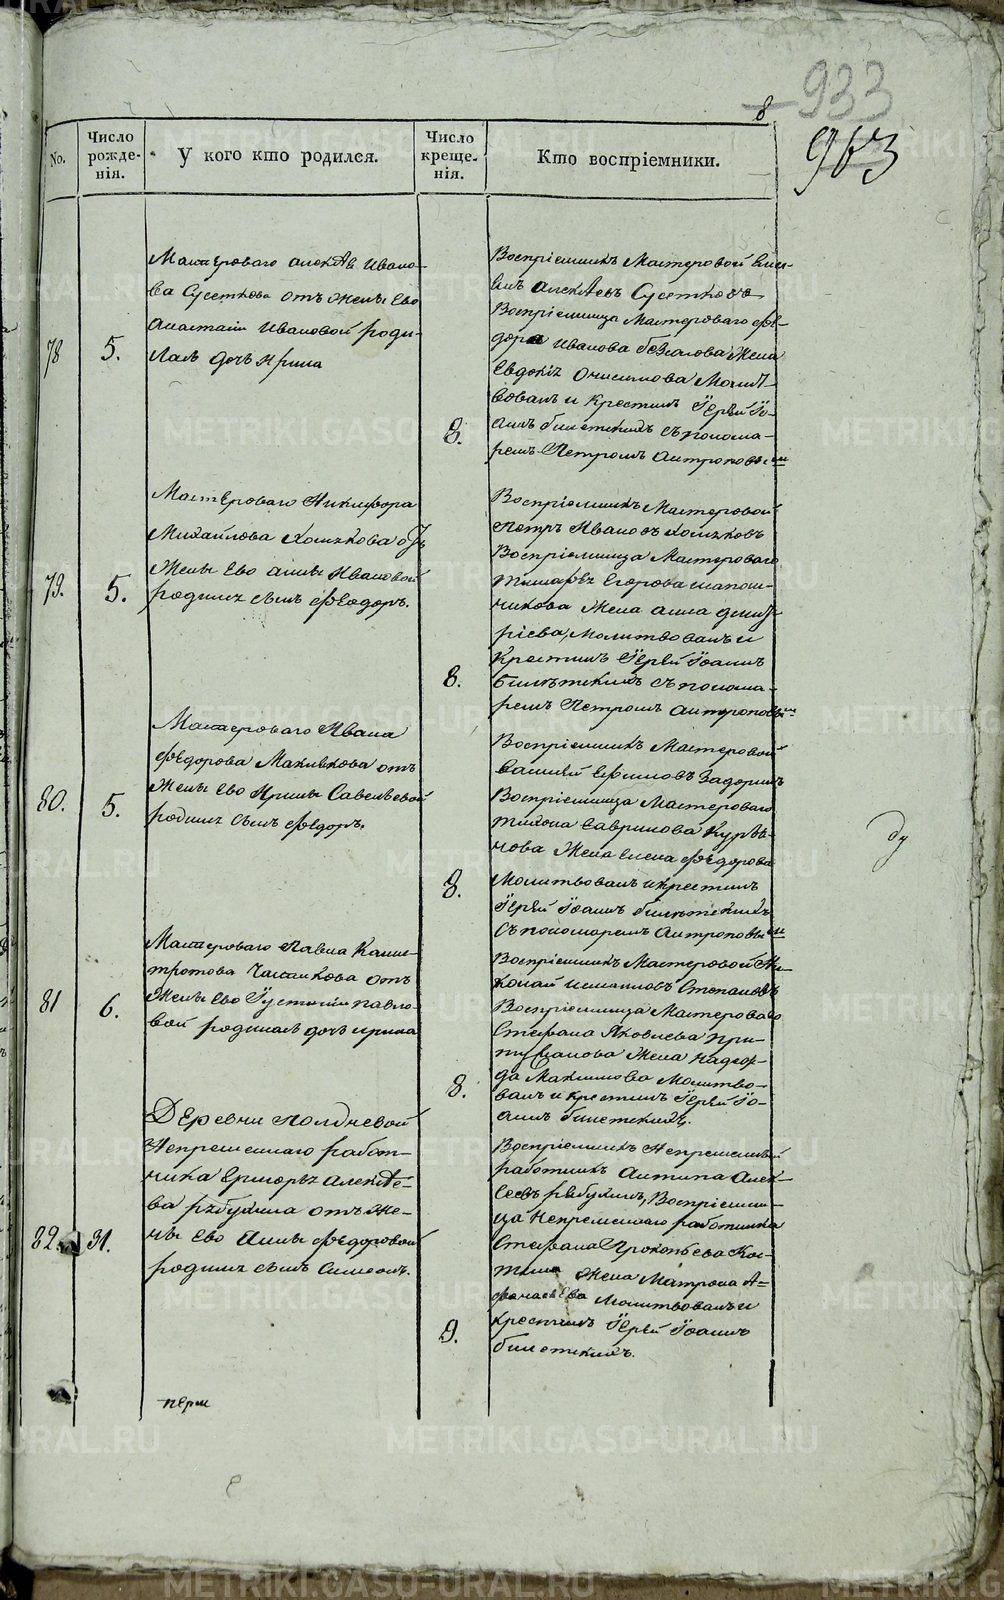 933
8
963
No.
Число рожде-нія.
У кого кто родился.
Число креще-нія.
Кто воспріемники.
78
5.
Мастероваго алексѣя Ивано-
ва Сусеткова отъ жены Ево
анастасіи Ивановой роди-
лась дочь Ирина
8.
Воспріемникъ Мастеровой
алексѣевъ Сусетковъ
Воспріемница Мастероваго фе-
дора Иванова жена
Евдокія Онисимова Молит-
вовалъ и крестилъ Іерей Іо-
аннъ билетскихъ съ понома-
ремъ Петромъ антроповымъ
79.
5.
Мастероваго Никифора
Михайлова Хомякова отъ
жены Ево анны Ивановой
родился сынъ феодоръ.
8.
Воспріемникъ Мастеровой
Петръ Ивановъ Хомяковъ
Воспріемница Мастероваго
Егорова шапош-
никова жена анна дмит-
ріева, Молитвовалъ и
крестилъ Іерей Іоаннъ
билѣтскихъ съ понома-
ремъ Петромъ антроповымъ
80.
5.
Мастероваго Ивана
федорова отъ
жены Ево Ирины Савельевой
родился сынъ федоръ.
8.
Воспріемникъ Мастеровой
Василей Ефимовъ Задоринъ
Воспріемница Мастероваго
тихона Гаврилова
жена елена федорова
Молитвовалъ и крестилъ
Іерей Іоаннъ билѣтскихъ
съ пономаремъ антроповымъ
81
6.
Мастероваго Павла Калис-
тротова отъ
жены Ево Іустиніи павло-
вой родилась дочь ирина
8.
Воспріемникъ Мастеровой Ни-
колай Степановъ
Воспріемница Мастероваго
Стефана Яковлева
жена надеж-
да Максимова Молитво-
валъ и крестилъ Іерей Іо-
аннъ билетскихъ.
82.
31.
Деревни Полдневой
Непременнаго работ-
ника алексѣе-
ва рябухина отъ же-
ны Ево анны федоровой
родился сынъ Симеонъ.
9.
Воспріемникъ Непременный
работникъ антипа алек-
сеевъ рябухинъ, Воспріемни-
ца Непременнаго работника
Стефана Прокопьева Кос-
тина жена Матрона А-
фанасьева Молитвовалъ и
крестилъ Іерей Іоаннъ
билетскихъ.
METRIKI.GASO-URAL.RU